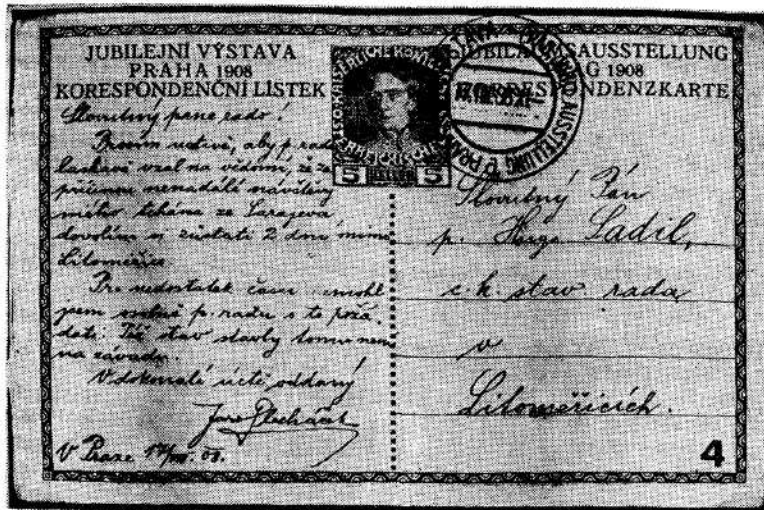 JUBILEJNÍ VÝSTAVA
PRAHA 1908
KORESPONDENČNÍ LÍSTEK
JUBILÄUMSAUSSTELLUNG
PRAG 1908
KORRESPONDENZKARTE
5 HELLER 5
Slovutný pane rado!
Prosím uctivě, aby p. rada
laskavě vzal na vědomí, že za
příčinou nenadálé návštěvy
mého tchána ze Sarajeva
dovolím si zůstati 2 dny mimo
Litoměřice.
Pro nedostatek času nemohl
jsem p. radu o to požá-
dati. Též stav stavby tomu není
na závadu.
V dokonalé úctě oddaný
V Praze 08.
Slovutný Pán
p. Hugo Sadil,
c. k. stav. rada
v
Litoměřicích.
4